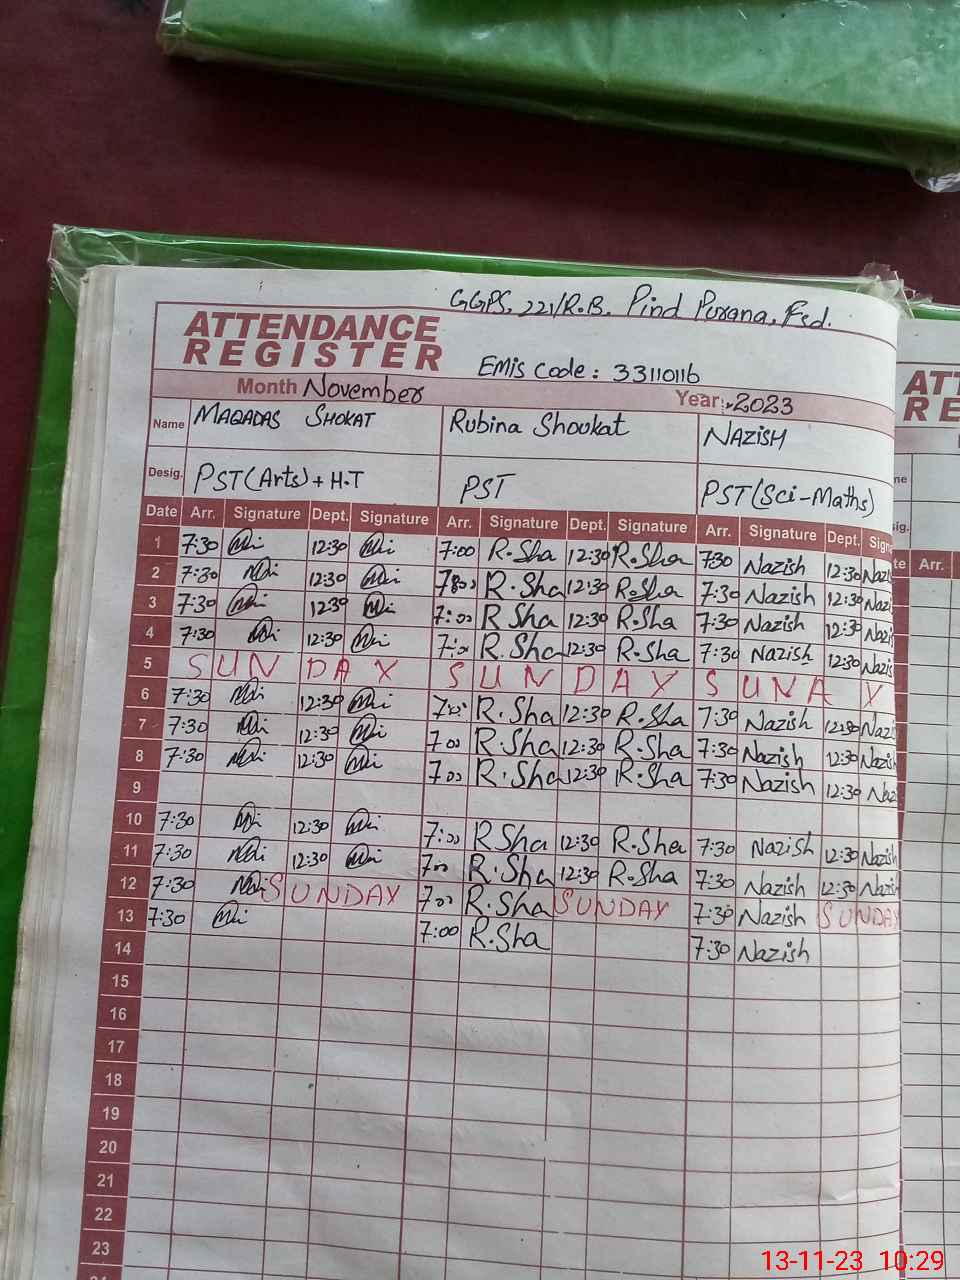 GGPS, 221/R.B. Pind Purana, Fsd.
ATTENDANCE
REGISTER
EMis code : 33110116
Month November Year :- 2023
Name MAQADAS SHOKAT Rubina Shoukat NAZISH
Desig. PST(Arts) + H.T PST PST(Sci-Maths)
Date Arr. Signature Dept. Signature Arr. Signature Dept. Signature Arr. Signature Dept. Sign
1 7:30 12:30 7:00 R.Sha 12:30 R.Sha 7:30 Nazish 12:30 Nazi
2 7:30 12:30 7:00 R.Sha 12:30 R.Sha 7:30 Nazish 12:30 Nazi
3 7:30 12:30 7:00 R.Sha 12:30 R.Sha 7:30 Nazish 12:30 Nazi
4 7:30 12:30 7:00 R.Sha 12:30 R.Sha 7:30 Nazish 12:30 Nazis
5 SUNDAY SUNDAY SUNAY
6 7:30 12:30 7:00 R.Sha 12:30 R.Sha 7:30 Nazish 12:30 Nazi
7 7:30 12:30 7:00 R.Sha 12:30 R.Sha 7:30 Nazish 12:30 Nazish
8 7:30 12:30 7:00 R.Sha 12:30 R.Sha 7:30 Nazish 12:30 Naz
9
10 7:30 12:30 7:00 R.Sha 12:30 R.Sha 7:30 Nazish 12:30 Nazish
11 7:30 12:30 7:00 R.Sha 12:30 R.Sha 7:30 Nazish 12:30 Nazish
12 7:30 SUNDAY 7:00 R.Sha SUNDAY 7:30 Nazish SUNDAY
13 7:30 7:00 R.Sha 7:30 Nazish
14
15
16
17
18
19
20
21
22
23
ATT
RE
Arr.
13-11-23 10:29